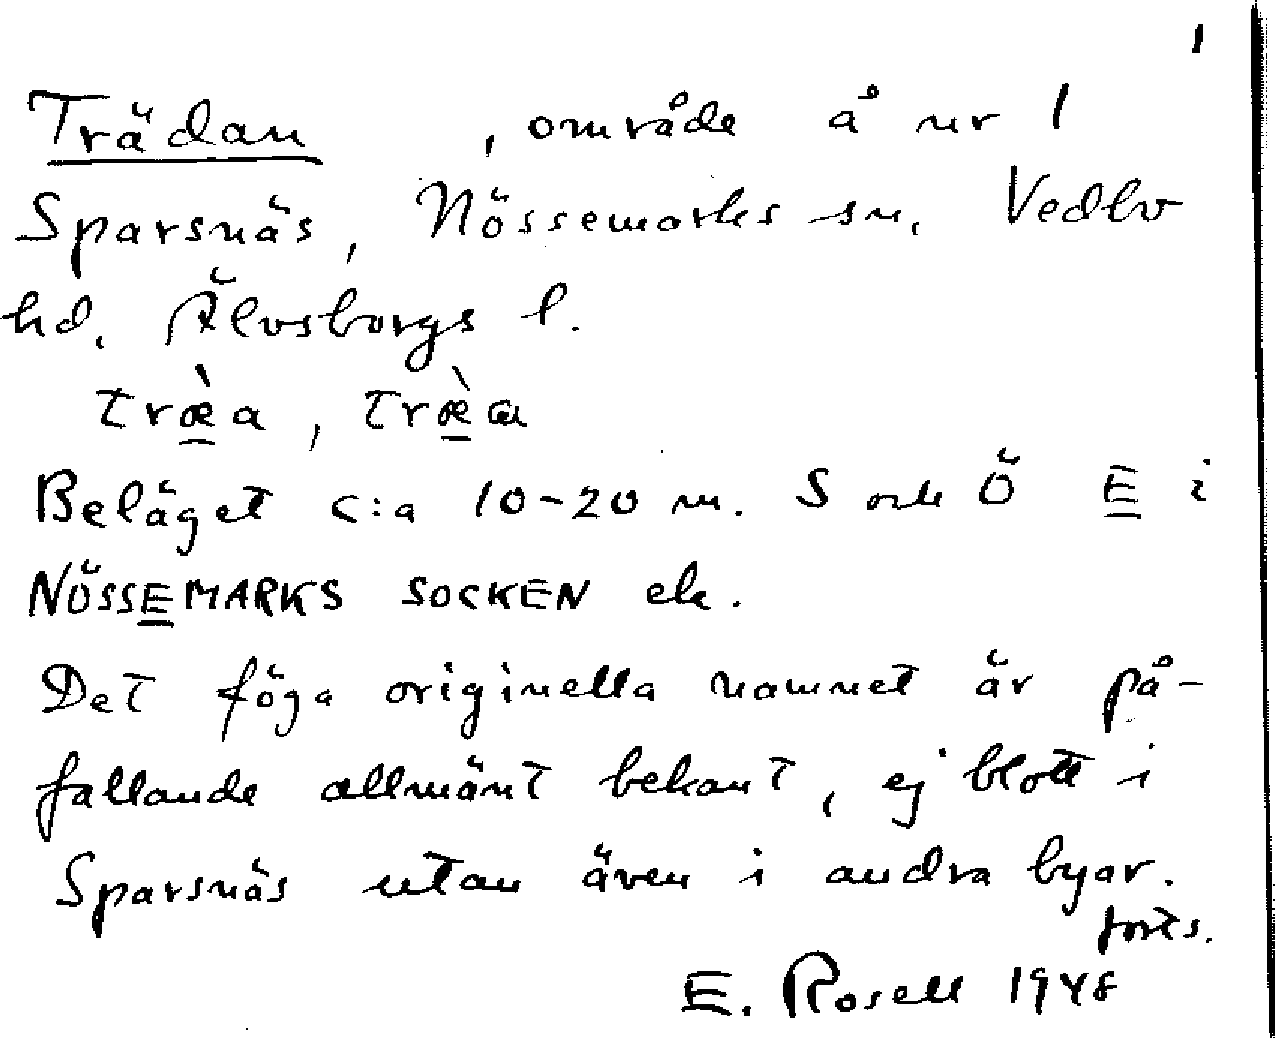 1
Trädan , område å nr 1
Sparsnäs, Nössemarks sn, Vedbo
hd, Älvsborgs l.
træ̀a, træ̀a
Beläget c:a 10-20 m. S och Ö E i
NÖSSEMARKS SOCKEN ek.
Det föga originella namnet är på-
fallande allmänt bekant, ej blott i
Sparsnäs utan även i andra byar.
forts.
E. Rosell 1948